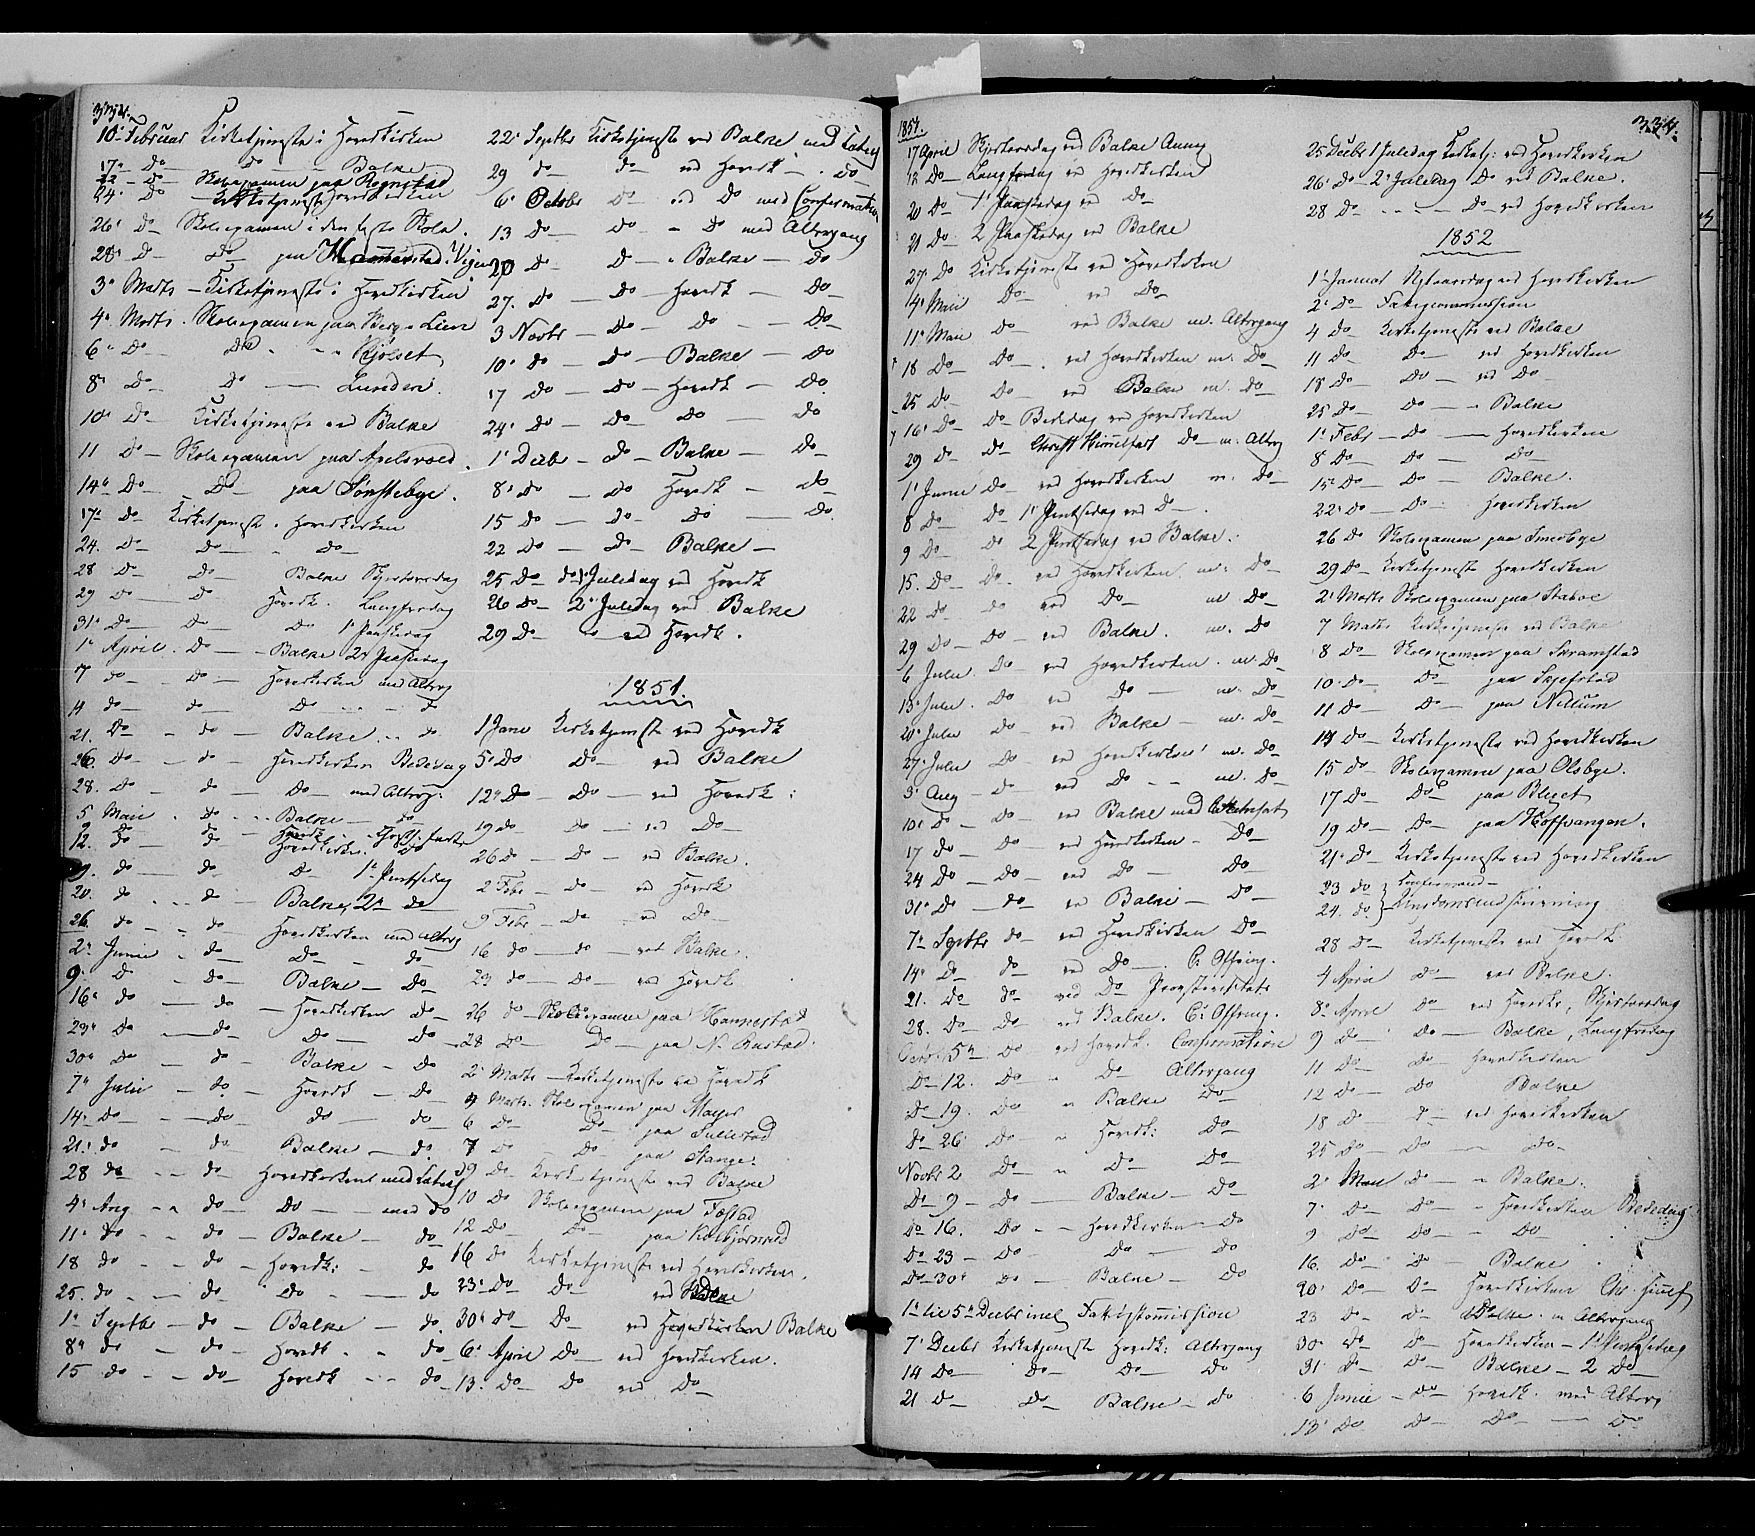 334.
10' Februar Kirketjeneste i Hovedkirken
17 Do Do Balke
22 Do Skoleexamen paa Rognstad
24' Do Kirketjeneste Hovedkirken
26' Do Skoleexamen i den faste Skole.
28' D Do paa Hammerstad i
3' Marts - Kirketjeneste i Hovedkirken
4' Marts. Skoleexamen paa Berg Lien
6' Do Do Kjølset
8' Do Do Lunden.
10' Do Kirketjeneste ved Balke
11 Do Skoleexamen paa Apelsvold.
14' Do Do paa Sønsteby.
17' Do Kirketjeneste i Hovedkirken
24. Do Do Do
28 Do Do Balke Skjertorsdag
29 Do Do Hovedk. Langfredag
31' Do Do Do 1' Paaskedag
1' April. Do - Balke 2' Paaskedag
7 do do Hovedkirken med Alterg
14 do do Do d
21. Do do Balke do
26. Do do Hovedkirken Bededag
28. Do do Do med Alterg:
5 Maii do Balke do
9 Do do Hovedk
12. do do Hovedkirken do
19. do do Do 1' Pintsedag
20. do do Balke, 2' do
26. do do Hovedkirken med Alterg
2' Junii do Do do
9. D do Balke Do
16' do do Hovedkirken do
23' Do do Do do
30' Do do Balke Do
7' Julii do Hovedk Do
14' Do do do do
21' do do Balke do
28 do do Hovedkirken med
4' Aug do Do med do
11' do do Balke do
18 do do Hovedk: do
25. do do do do
1' Septbr do Balke do
8' do do Hovedk do
15 do do Hovedk do
22' Septbr Kirketjeneste ved Balke med
29 do do ved Hovedk do
6' Octobr D ved Do med Confirmation
13 Do Do Do med Altergang
20 D D Balke Do
27. Do Do Hovedk Do
3 Novbr Do Do Do
10' do do Balke Do
17 Do Do Hovedk Do
24' Do Do Do Do
1' Decbr do Balke Do
8' do do Hovedk do
15 Do Do Do Do
22 Do Do Balke
25 Do do 1' Juledag ved Hovedk
26 Do 2' Juledag ved Balke
29 Do ved Hovedk.
1851.
1 Janr Kirketjeneste ved Hovedk
5' Do Do ved Balke
12' Do Do ved Hovedk:
19 do do ved Do
26 do Do ved Balke.
2 Febr do ved Hovedk
9 Febr Do ved Do
16 do do ved Balke.
23 do Do ved Hovedk
26 do Skoleexamen paa Hammestad
28 Do Do paa N. Rustad.
2' Marts Kirketjeneste ved Hovedk
4 Marts Skoleexamen paa
6 Do Do paa
7 do Do paa Stange.
9 do Kirketjeneste ved Balke
10 Do Skoleexamen paa
12 Do Do paa
16 do Kirketjeneste ved Hovedkirken.
23' Do Do ved Balke
30' do Do ved Hovedkirken Balke
6' April Do ved Hovedkirken.
13. Do Do ved Do
1851. 334.
17 April Skjertorsdag ved Balke Annex
18 Do Langfredag ved Hovedkirken
20 Do 1' Paaskedag ved Do
21 Do 2 Paaskedag ved Balke
27' Do Kirketjeneste ved Hovedkirken
4' Maii Do ved Do
11' Maii do ved Balke m. Altergang
18 Do Do ved Hovedkirken m: Do
25 Do Do ved Balke m. do
16' Do Do Bededag ved Hovedkirken
29 do Do Christi Himmelfart Do m: Alterg
1' Junii do ved Hovedkirken m: do
8 Do do 1' Pintsedag ved D
9 Do do 2 Pintsedag ved Balke.
15. Do do ved Hovedkirken m: do
22 do do ved Do m Do
29 Do do ved Balke. m. do
6 Julii Do ved Hovedkirken. m. Do
13' Julii. do ved do m. Do
20' Julii do ved Balke m. do
27' Julii do ved Hovedkirken m. do
3' Aug do ved D m. do
10' do do ved Balke med
17 do do ved Hovedkirken Do
24 do do ved Do Do
31' Do do ved Balke Do
7' Septbr do ved Hovedkirken Do
14' do do ved Do C: Offring.
21. do do ved Do
28. Do Do ved Balke. C: Offring.
Octobr 5' Do ved Hovedk: Confirmation
Do 12. Do Do Altergang
Do 19. Do Balke Do
Do 26 Do Hovedk: Do
Novbr 2 Do Do Do
Do 9 Do Balke Do
Do 16. Do Hovedkirken do
Do 23 Do Do do
Do 30' Do Balke Do
1' til 5' Decbr incl Fattigkommission
7' Decbr Kirketjeneste Hovedk: Altergang
14 Do do Do Do
21 do do Balke do
25 Decbr 1 Juledag Kirketj: ved Hovedkirken
26' do 2' Juledag Do ved Balke.
28 Do Do ved Hovedkirken
1852
1' Januar Nytaarsdag ved Hovedkirken
2' do Fattigcommission
4 do Kirketjeneste ved Balke
11 do do ved Hovedkirken
18 do do ved Do
25 do do Balke
1' Febr do Hovedkirken
8' do do do
15' do do Balke.
22' do do Hovedkirken
26 do Skoleexamen paa Smedbye
29 do Kirketjeneste Hovedkirken
2' Marts Skoleexamen paa Staboe
7 Marts Kirketjeneste ved Balke
8 do Skoleexamen paa Skramstad
10 do do paa
11 do do paa Nellum
14 do Kirketjeneste ved Hovedkirken
15 do Skoleexamen paa Olsbye.
17 Do Do paa
19 do do paa Hoffvangen.
21' do Kirketjeneste ved Hovedkirken
23 do
24. do
28 do Kirketjeneste ved Hovedk
4 April do ved Balke.
8' April do ved Hovedk, Skjertorsdag
9 do do Balke, Langfredag
11 do do Hovedkirken
12 do do Balke
18 do ved Hovedkirken
25 do do do
2' Maii do Balke.
7' do do Hovedkirken Bededag
9 do do do
16. do do Balke
20' do do Hovedkirken Chr. Himlf
23 do do Balke m Altergang
30 do do Hovedkirken 1' Pintsedag
31' do do Balke 2 do
6 Junii do Hovedk. med Alterg
13' do do Do do